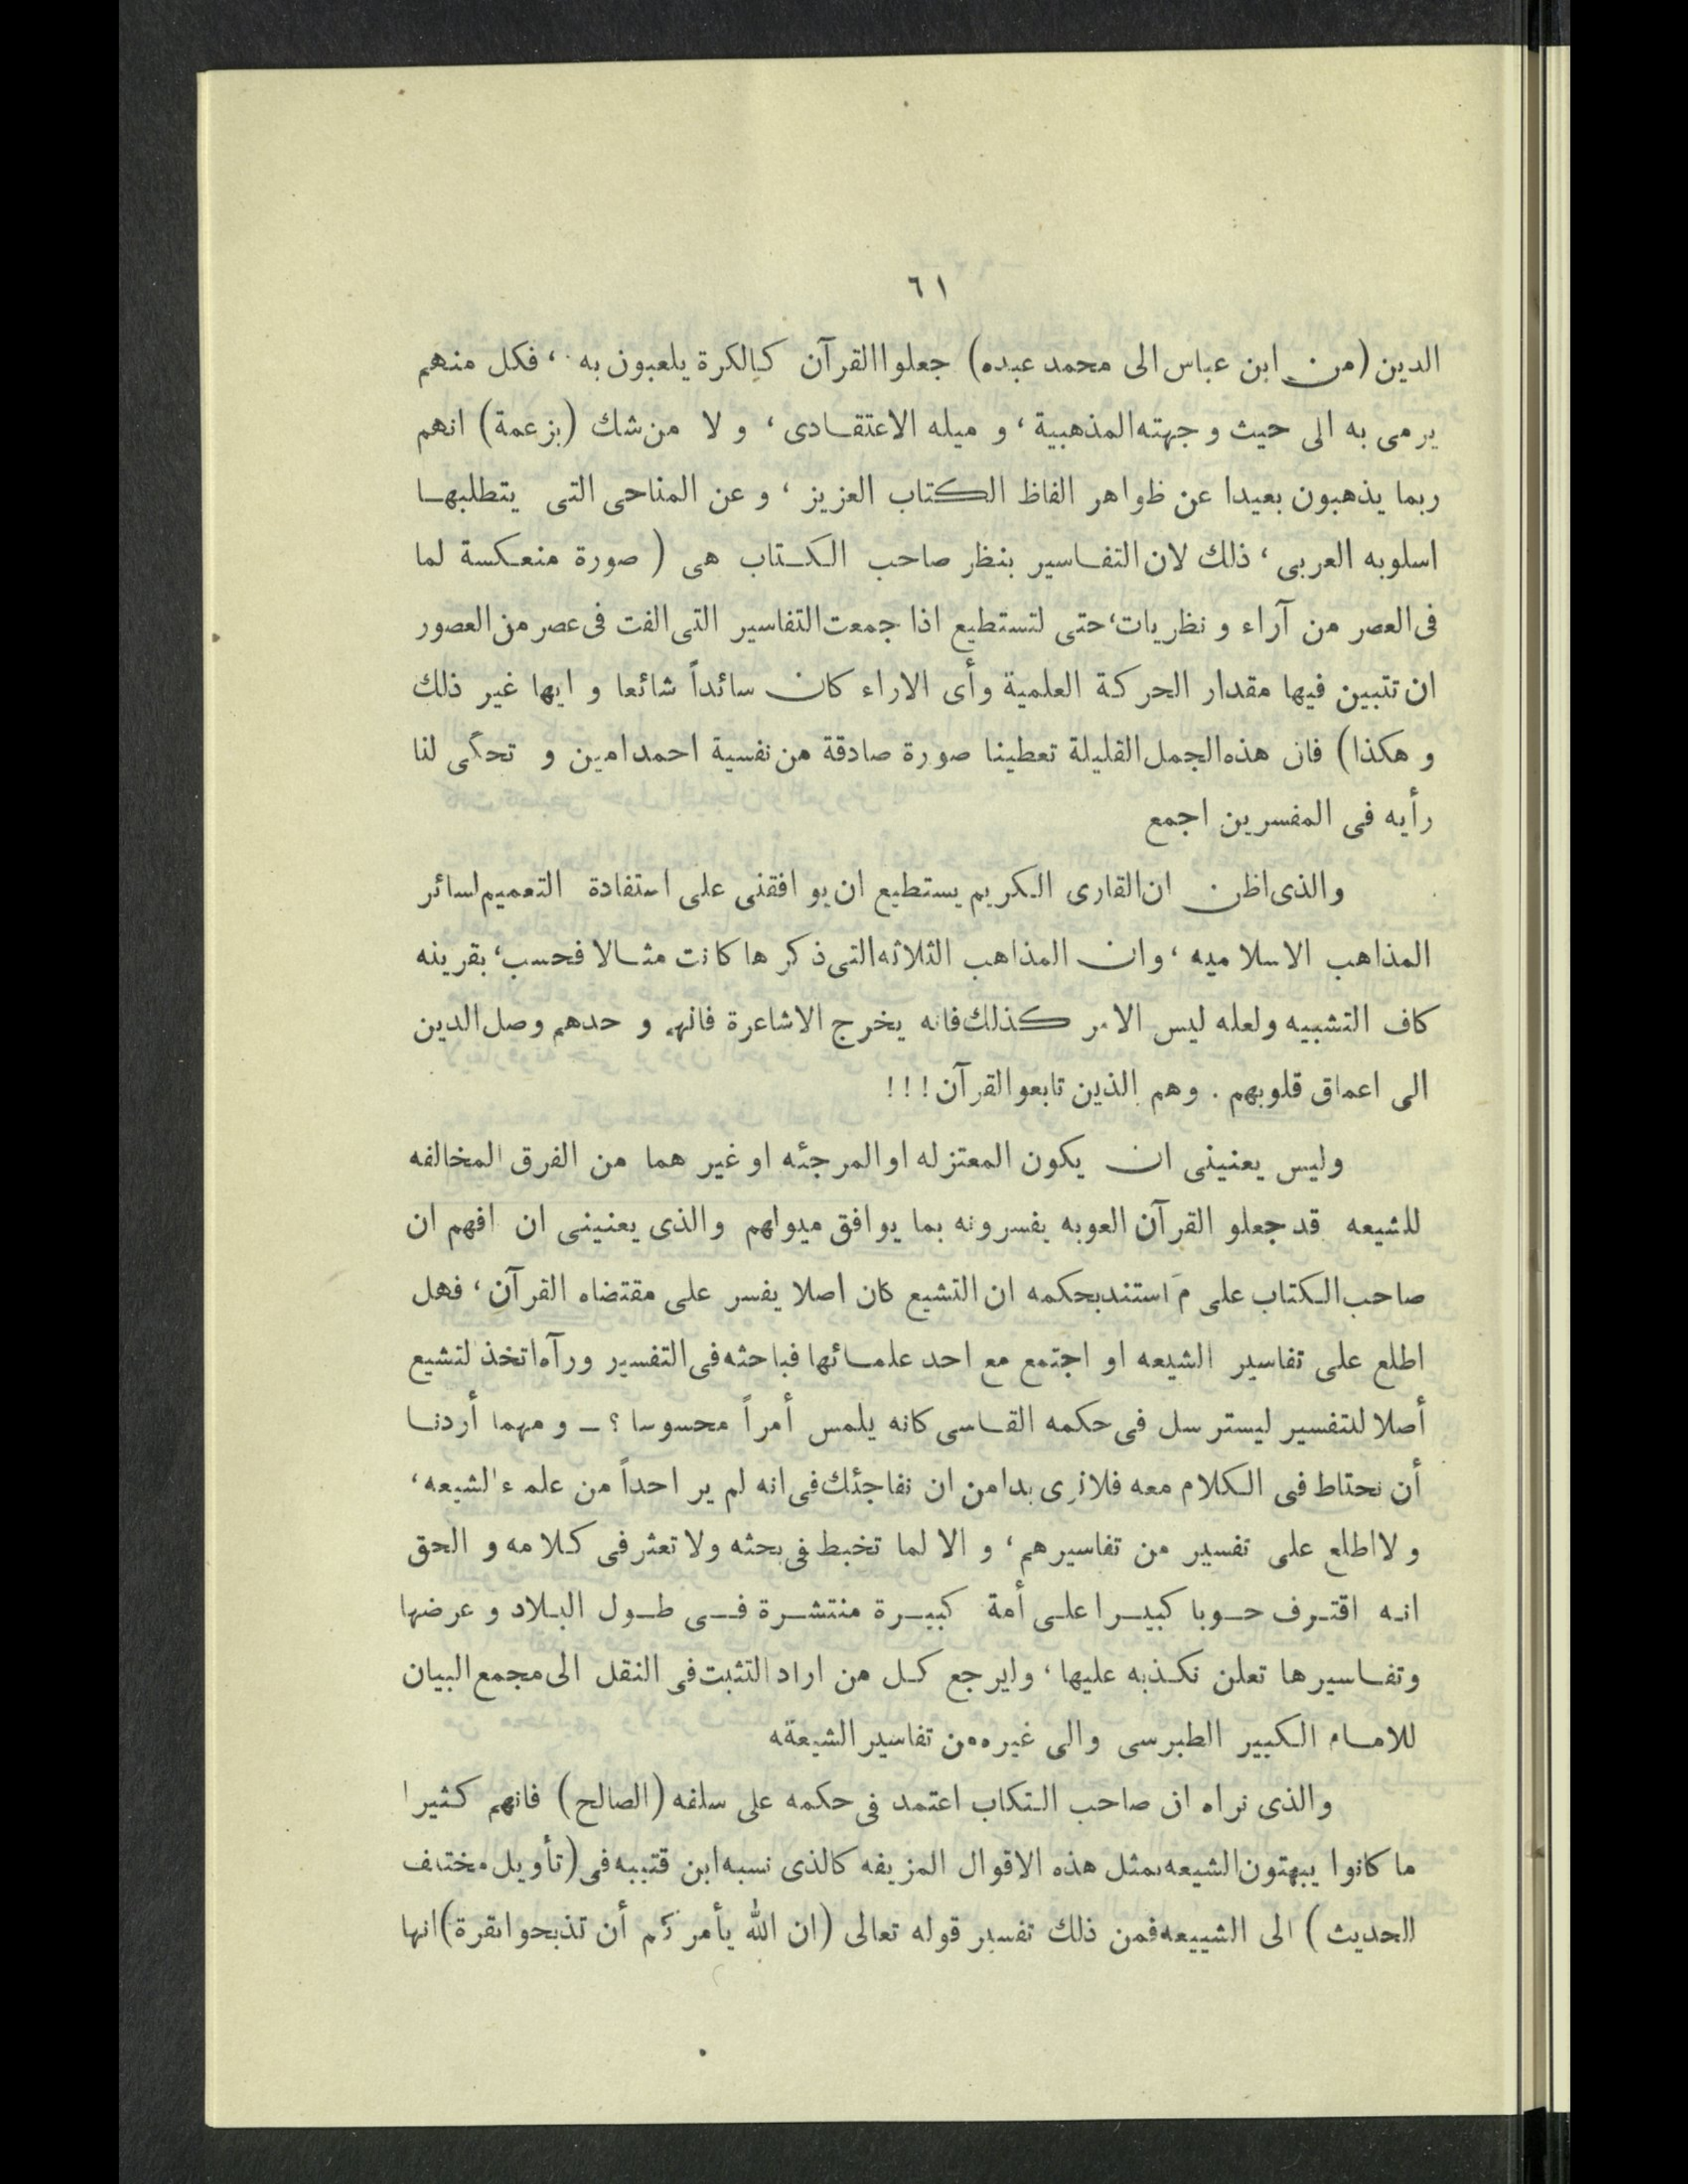 ٦١
الدين (من ابن عباس الى محمد عبده) جعلوا القرآن كالكرة يلعبون به ، فكل منهم
يرمى به الى حيث وجهته المذهبية ، و ميله الاعتقادى ، و لا من شك (بزعمة) انهم
ربما يذهبون بعيدا عن ظواهر الفاظ الكتاب العزيز ، و عن المناحى التى يتطلبها
اسلوبه العربى ، ذلك لان التفاسير بنظر صاحب الكتاب هى ( صورة منعكسة لما
فى العصر من آراء و نظريات، حتى لتستطيع اذا جمعت التفاسير التى الفت فى عصر من العصور
ان تتبين فيها مقدار الحركة العلمية وأى الاراء كان سائداً شائعا و ايها غير ذلك
و هكذا) فان هذه الجمل القليلة تعطينا صورة صادقة من نفسية احمد امين و تحكى لنا
رأيه فى المفسرين اجمع
والذى اظن ان القارى الكريم يستطيع ان يوافقنى على استفادة التعميم لسائر
المذاهب الاسلاميه ، وان المذاهب الثلاثه التى ذكرها كانت مثالا فحسب، بقرينه
كاف التشبيه ولعله ليس الامر كذلك فانه يخرج الاشاعرة فانهم و حدهم وصل الدين
الى اعماق قلوبهم . وهم الذين تابعو القرآن ! ! !
وليس يعنينى ان يكون المعتزله او المرجئه او غير هما من الفرق المخالفه
للشيعه قد جعلو القرآن العوبه يفسرونه بما يوافق ميولهم والذى يعنينى ان افهم ان
صاحب الكتاب على م استند بحكمه ان التشيع كان اصلا يفسر على مقتضاه القرآن ، فهل
اطلع على تفاسير الشيعه او اجتمع مع احد علمائها فباحثه فى التفسير ورآه اتخذ لتشيع
أصلا للتفسير ليستر سل فى حكمه القاسى كانه يلمس أمراً محسوسا ؟ ــ و مهما أردنا
أن نحتاط فى الكلام معه فلانرى بدا من ان نفاجئك فى انه لم ير احداً من علماء الشيعه ،
و لا اطلع على تفسير من تفاسيرهم ، و الا لما تخبط فى بحثه ولا تعثر فى كلامه و الحق
انه اقترف حوبا كبيرا على أمة كبيرة منتشرة فى طول البلاد و عرضها
وتفاسيرها تعلن نكذبه عليها ، وليرجع كل من اراد التثبت فى النقل الى مجمع البيان
للامام الكبير الطبرسى والى غيره من تفاسير الشيعةه
والذى نراه ان صاحب التكاب اعتمد فى حكمه على سلفه (الصالح) فانهم كثيرا
ما كانوا يبهتون الشيعه بمثل هذه الاقوال المزيفه كالذى نسبه ابن قتيبه فى (تأويل مختلف
الحديث ) الى الشييعه فمن ذلك تفسير قوله تعالى (ان الله يأمركم أن تذبحوا بقرة) انها